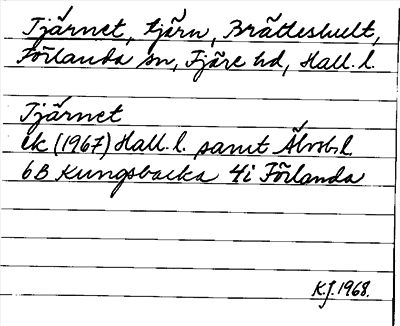 Tjärnet, tjärn, Brätteshult,
Förlanda sn, Fjäre hd, Hall. l.
Tjärnet
ek (1967) Hall. l. samt Älvsb.l.
6B Kungsbacka 4i Förlanda
K.J. 1968.